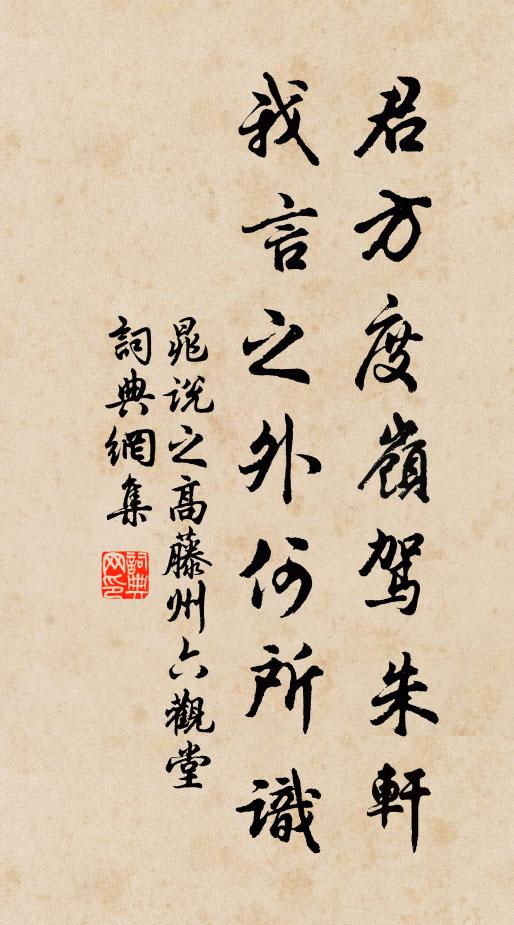 君方度嶺駕朱軒
我言之外何所識
晁說之高藤州六觀堂
詞典網集
詞典网印